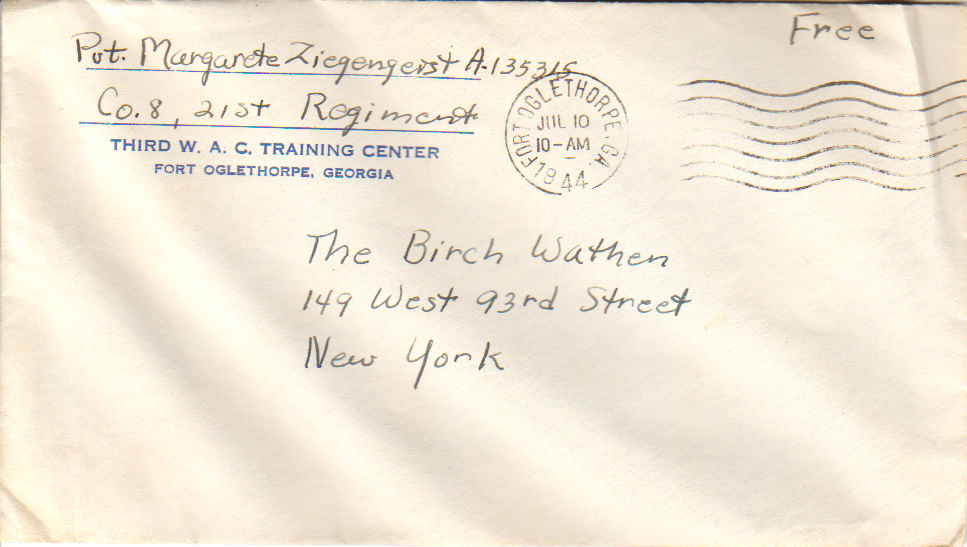 Free
Pvt. Margarete Ziegengeist A-135315
Co. 8, 21st Regiment
THIRD W. A. C. TRAINING CENTER
FORT OGLETHORPE, GEORGIA
FORT OGLETHORPE, GA.
JUL 10
10-AM
1944
The Birch Wathen
149 West 93rd Street
New York